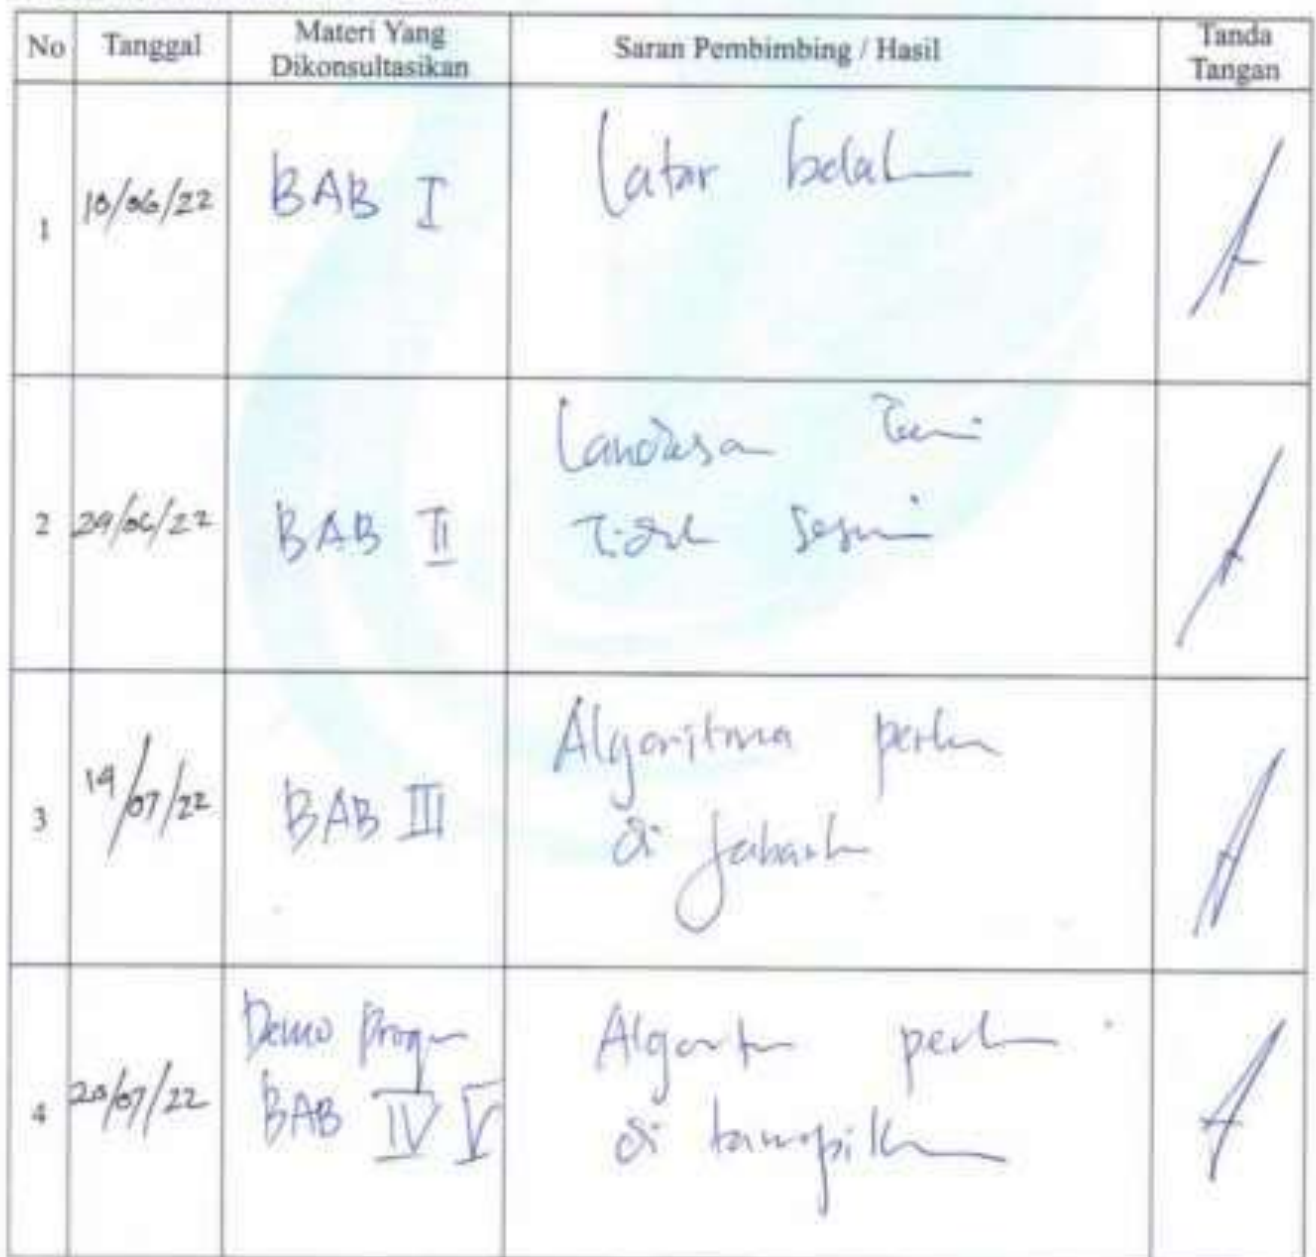 No Tanggal Materi Yang Dikonsultasikan Saran Pembimbing / Hasil Tanda Tangan
1 10/06/22 BAB I Latar belak
2 29/06/22 BAB II Landasan Teori
Tidak Sesuai
3 14/07/22 BAB III Algoritma perlu
di Jabark
4 20/07/22 Demo Progr
BAB IV V Algoritm perlu
di tampilk